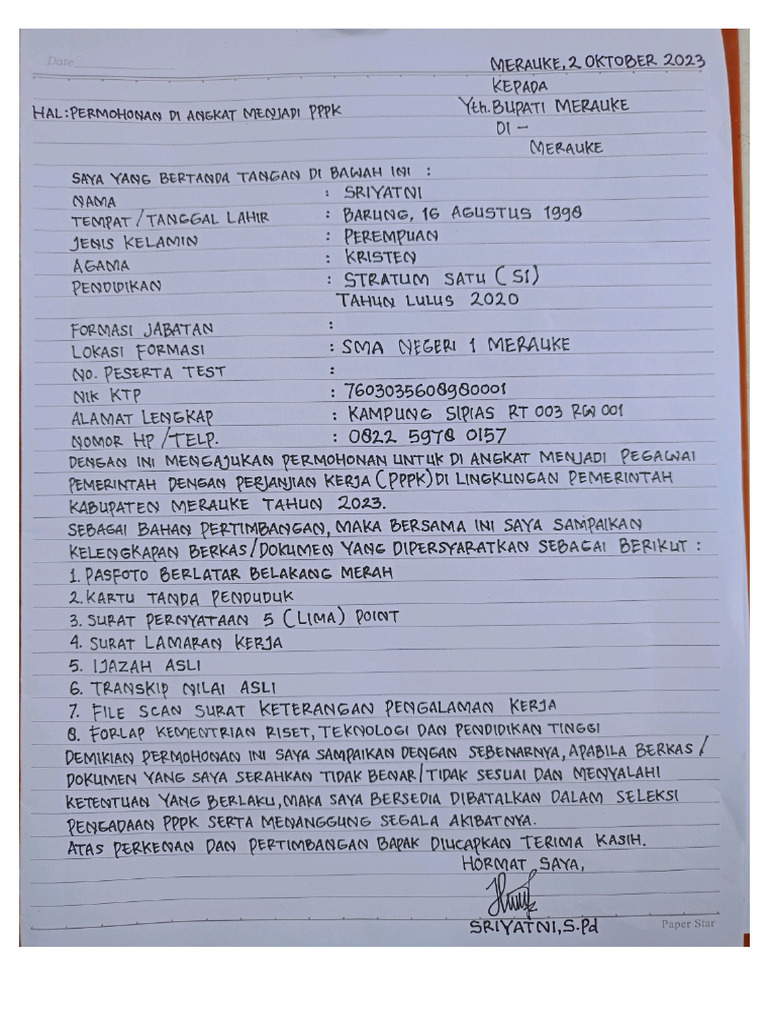 Date
MERAUKE, 2 OKTOBER 2023
KEPADA
HAL : PERMOHONAN DI ANGKAT MENJADI PPPK
Yth. BUPATI MERAUKE
DI –
MERAUKE
SAYA YANG BERTANDA TANGAN DI BAWAH INI :
NAMA : SRIYATNI
TEMPAT / TANGGAL LAHIR : BARUNG, 16 AGUSTUS 1998
JENIS KELAMIN : PEREMPUAN
AGAMA : KRISTEN
PENDIDIKAN : STRATUM SATU ( S1 )
TAHUN LULUS 2020
FORMASI JABATAN :
LOKASI FORMASI : SMA NEGERI 1 MERAUKE
NO. PESERTA TEST :
NIK KTP : 7603035608980001
ALAMAT LENGKAP : KAMPUNG SIPIAS RT 003 RW 001
NOMOR HP / TELP. : 0822 5978 0157
DENGAN INI MENGAJUKAN PERMOHONAN UNTUK DI ANGKAT MENJADI PEGAWAI
PEMERINTAH DENGAN PERJANJIAN KERJA (PPPK) DI LINGKUNGAN PEMERINTAH
KABUPATEN MERAUKE TAHUN 2023.
SEBAGAI BAHAN PERTIMBANGAN, MAKA BERSAMA INI SAYA SAMPAIKAN
KELENGKAPAN BERKAS/DOKUMEN YANG DIPERSYARATKAN SEBAGAI BERIKUT :
1. PASFOTO BERLATAR BELAKANG MERAH
2. KARTU TANDA PENDUDUK
3. SURAT PERNYATAAN 5 (LIMA) POINT
4. SURAT LAMARAN KERJA
5. IJAZAH ASLI
6. TRANSKIP NILAI ASLI
7. FILE SCAN SURAT KETERANGAN PENGALAMAN KERJA
8. FORLAP KEMENTRIAN RISET, TEKNOLOGI DAN PENDIDIKAN TINGGI
DEMIKIAN PERMOHONAN INI SAYA SAMPAIKAN DENGAN SEBENARNYA, APABILA BERKAS /
DOKUMEN YANG SAYA SERAHKAN TIDAK BENAR / TIDAK SESUAI DAN MENYALAHI
KETENTUAN YANG BERLAKU, MAKA SAYA BERSEDIA DIBATALKAN DALAM SELEKSI
PENGADAAN PPPK SERTA MENANGGUNG SEGALA AKIBATNYA.
ATAS PERKENAN DAN PERTIMBANGAN BAPAK DIUCAPKAN TERIMA KASIH.
HORMAT SAYA,
SRIYATNI, S.Pd
Paper Star